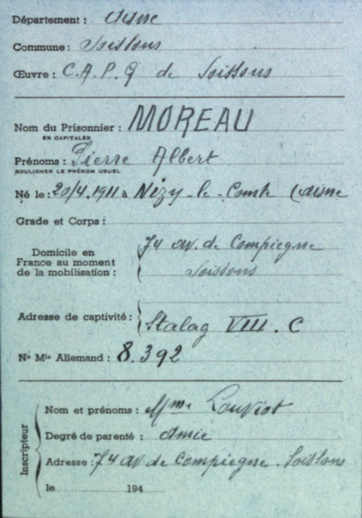 Département : Aisne
Commune : Soissons
Œuvre : C.A.P.G de Soissons
Nom du Prisonnier : MOREAU
EN CAPITALES
Prénoms : Pierre Albert
SOULIGNER LE PRÉNOM USUEL
Né le : 20/4.1911 à Nizy-le-Comte (Aisne
Grade et Corps :
Domicile en France au moment de la mobilisation : 74 av. de Compiegne
Soissons
Adresse de captivité : Stalag VIII. C
N° Mle Allemand : 8.392
Inscripteur
Nom et prénoms : Mme Louviot
Degré de parenté : Amie
Adresse : 74 av de Compiegne. Soissons
le 194